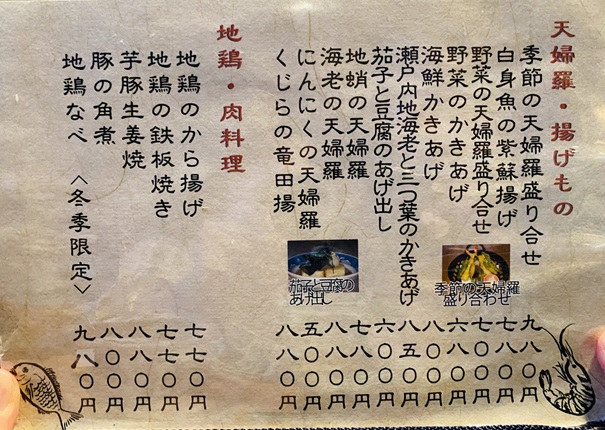 天婦羅・揚げもの
季節の天婦羅盛り合せ 九八〇円
白身魚の紫蘇揚げ 七八〇円
野菜の天婦羅盛り合せ 七〇〇円
野菜のかきあげ 六八〇円
海鮮かきあげ 八〇〇円
瀬戸内地海老と三つ葉のかきあげ 八五〇円
茄子と豆腐のあげ出し 六〇〇円
地蛸の天婦羅 七八〇円
海老の天婦羅 八八〇円
にんにくの天婦羅 五〇〇円
くじらの竜田揚 八八〇円
季節の天婦羅
盛り合わせ
茄子と豆腐の
あげ出し
地鶏・肉料理
地鶏のから揚げ 七七〇円
地鶏の鉄板焼き 七七〇円
芋豚生姜焼 八八〇円
豚の角煮 八〇〇円
地鶏なべ 〈冬季限定〉 九八〇円